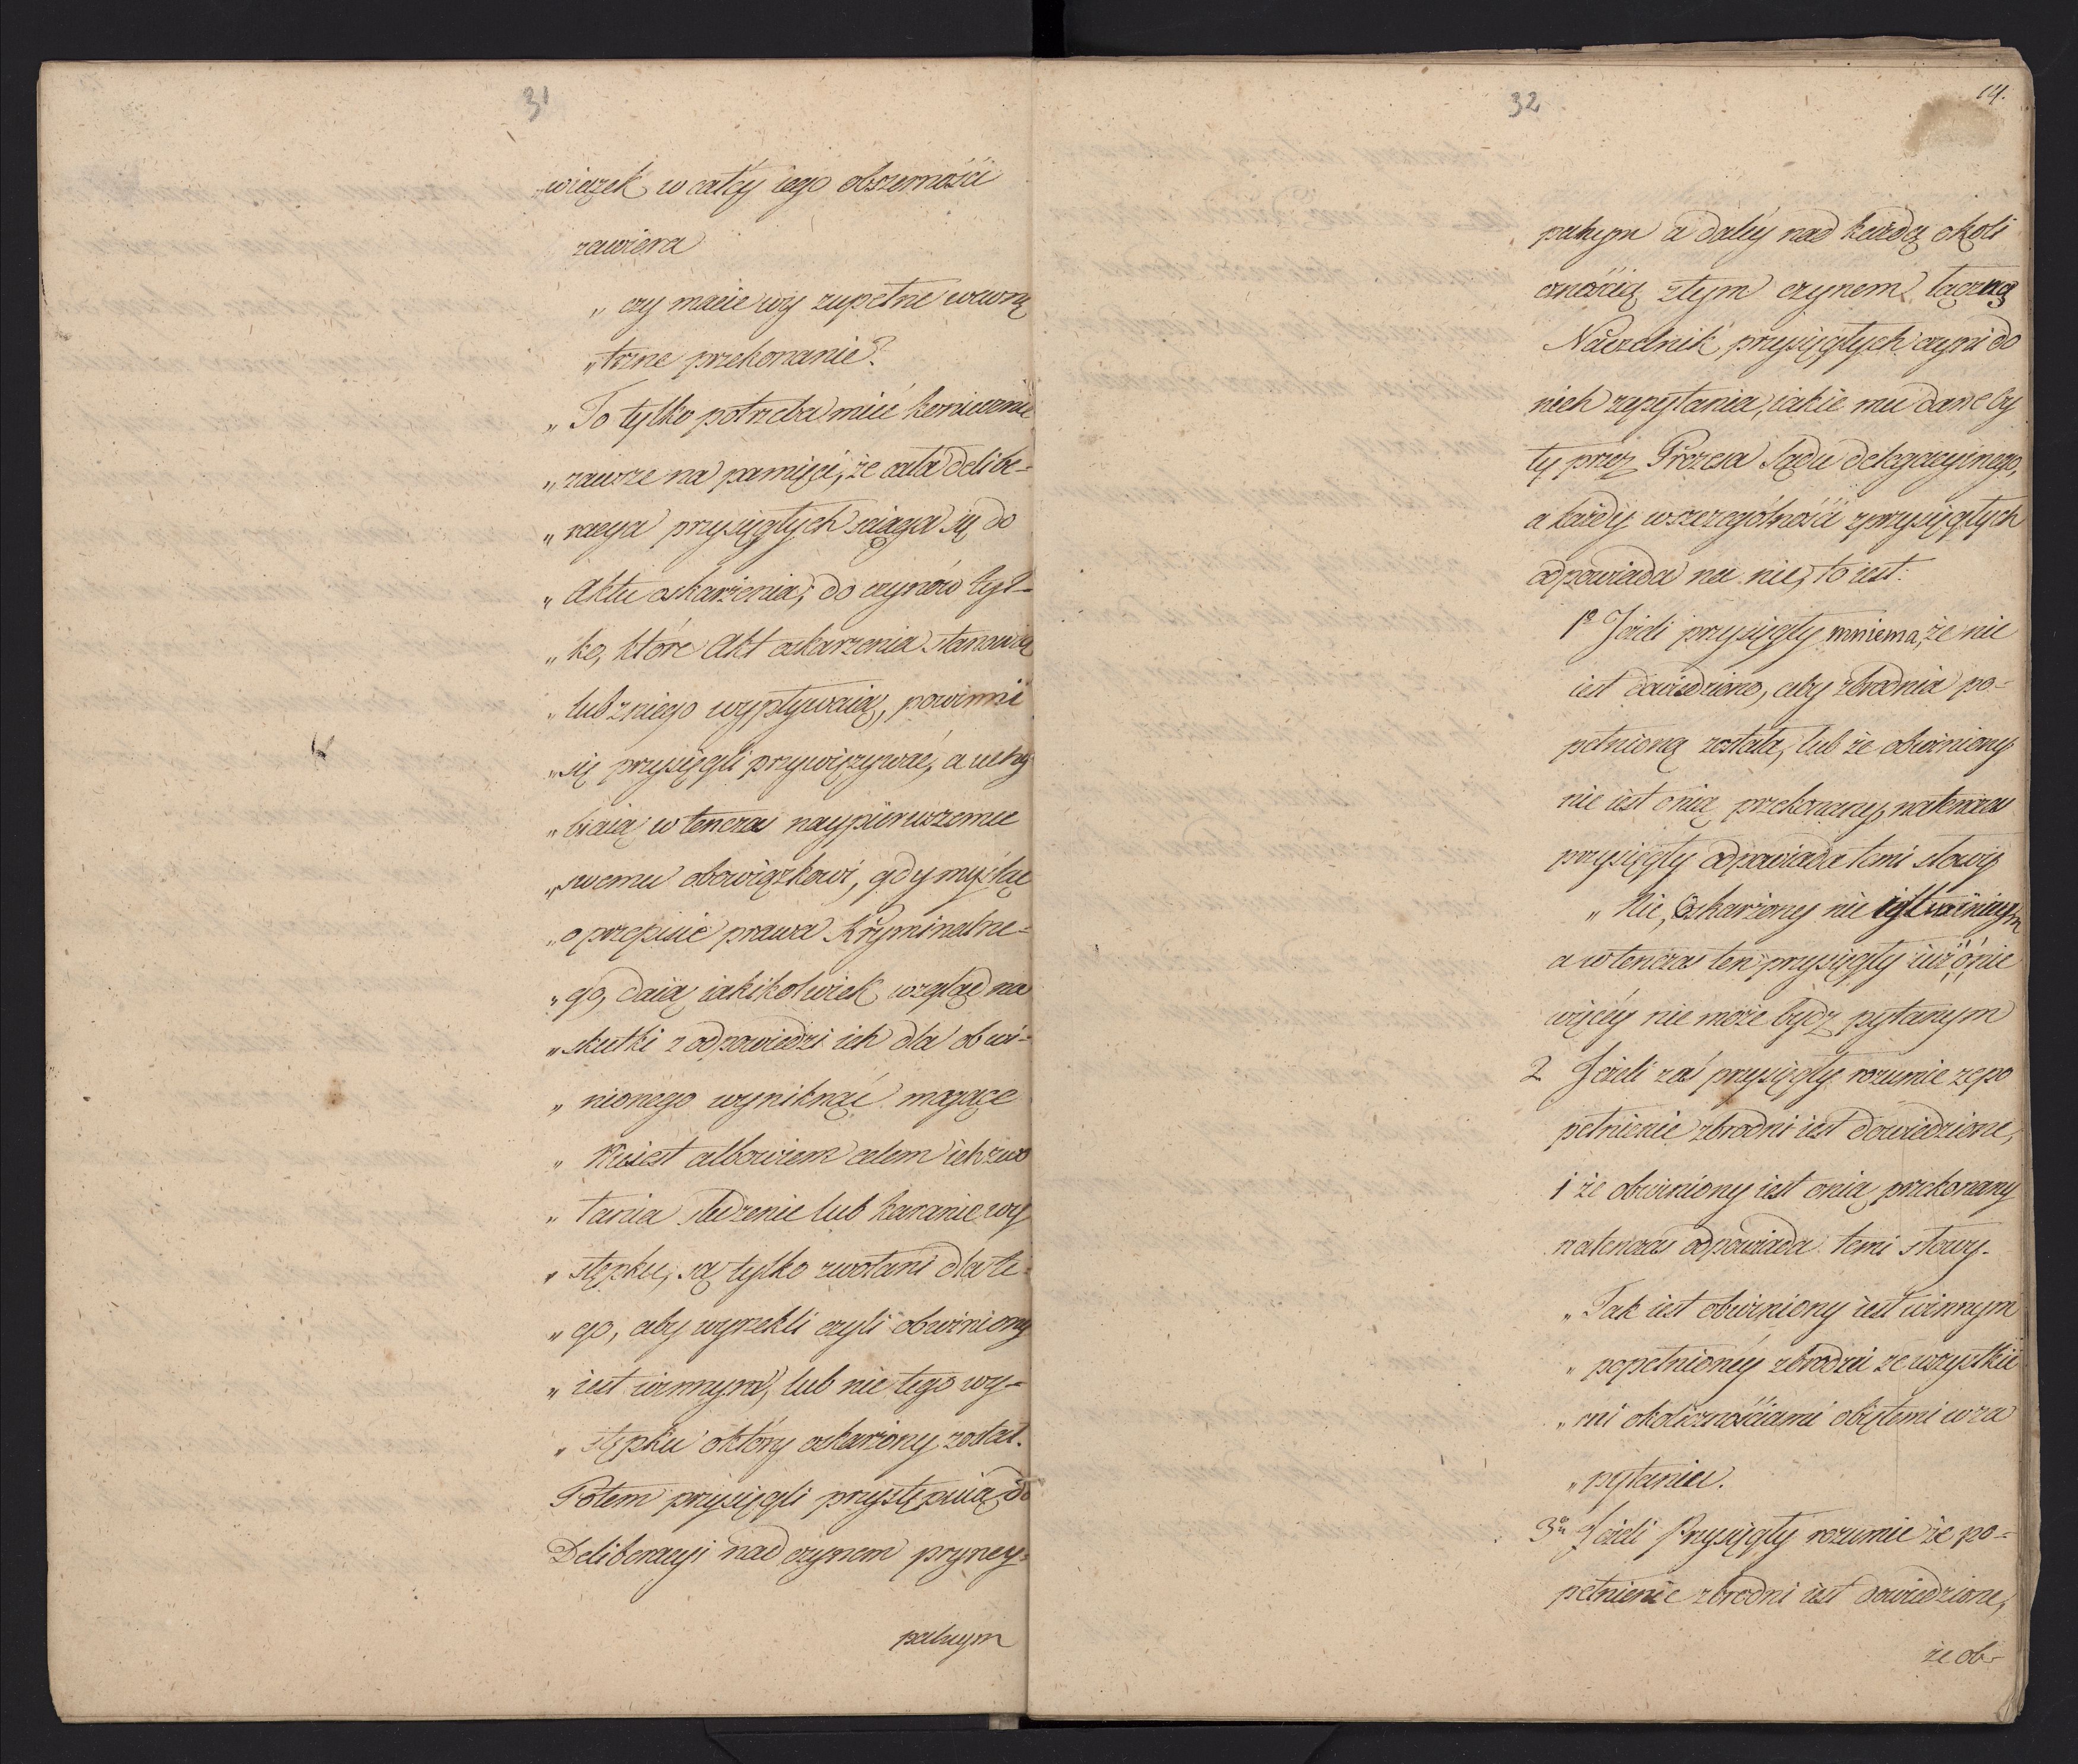 31
„wiązek w całey iego obszerności
zawiera
„ czy macie wy zupełne wewnę
„trzne przekonanie?
„ To tylko potrzeba mieć koniecznie
„ zawsze na pamięci, że cała delibe-
„ racya przysięgłych ściąga się do
„ Aktu oskarżenia; do czynów tyl-
„ ko, które Akt oskarzenia stanowią
„ lub zniego wypływaią, powinni
„ się przysięgli przywięzywać, a uchy
„ biaią wtenczas naypierwszemu
„ swemu obowiązkowi, gdy myśląc
„ o przepisie prawa Kryminalne-
„ go, daią iakikolwiek wzgląd na
„ skutki z odpowiedzi ich dla obwi-
„ nionego wyniknąć mające
„ Nieiest albowiem celem ich zwo
„ łania śledzenie lub karanie wy
„ stępku, są tylko zwołani dla te-
„ go, aby wyrzekli czyli obwiniony
„ iest winnym, lub nie tego wy-
„ stępku októry oskarżony został.
Potem przysięgli przystępuią do
Deliberacyi nad czynem pryncy-
palnym
32
14.
palnym a daléy nad każdą okoli
cznością ztym czynem łączną
Naczelnik przysięgłych czyni do
nich zapytania, iakie mu dane by
ły przez Prezesa Sądu delegacyinego,
a każdy wszczególności zprzysięgłych
odpowiada na nie, to iest:
1º Jeżeli przysięgły mniema, że nie
iest dowiedziono, aby zbrodnia po-
pełnioną została, lub że obwiniony
nie iest onią przekonany, natenczas
przysięgły odpowiada temi słowy
„ Nie, Oskarżony nie iest winnym
a wtenczas ten przysięgły iuż o nie
więcéy nie może bydz pytanym
2 Jeżeli zaś przysięgły rozumie że po
pełnienie zbrodni iest dowiedzione,
i że obwiniony iest onią przekonany
natenczas odpowiada temi słowy.
„ Tak iest obwiniony iest winnym
„ popełnionéy zbrodni ze wszystkie
„ mi okolicznościami obiętemi wza
„ pytaniu.
3º Jeżeli Przysięgły rozumie że po-
pełnienie zbrodni iest dowiedzione,
że ob-